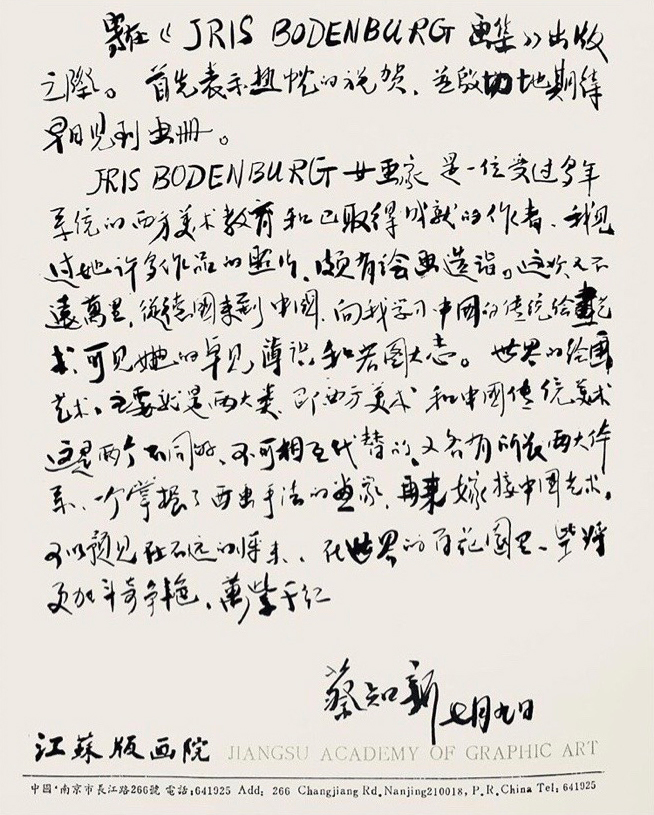 在《JRIS BODENBURG 画集》出版
之際。首先表示热忱的祝贺，並殷切地期待
早日见到画册。
JRIS BODENBURG 女画家是一位受过多年
系统的西方美术教育和已取得成就的作者、我见
过她许多作品的照片，颇有绘画造诣。这次又不
遠萬里，從德國来到中國，向我学习中國的传统绘畫艺
术，可见她的卓见，和宏图大志。世界的绘画
艺术，主要就是两大类，即西方美术和中國传统美术
这是两个不同的、不可相互代替的、又各有所长两大体
系、一个掌握了西画手法的画家，再来嫁接中国艺术。
可以预见在不远的将来，在世界的百花園里、必将
更加斗奇争艳，萬紫千红
蔡知新 七月九日
江蘇版画院 JIANGSU ACADEMY OF GRAPHIC ART
中國·南京市長江路266號 電話:641925 Add: 266 Changjiang Rd.Nanjing210018, P.R.China Tel: 641925